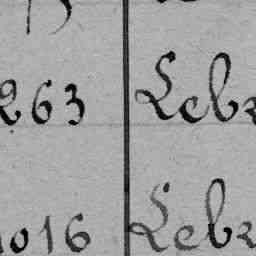 263 Lebr
1016 Lebr